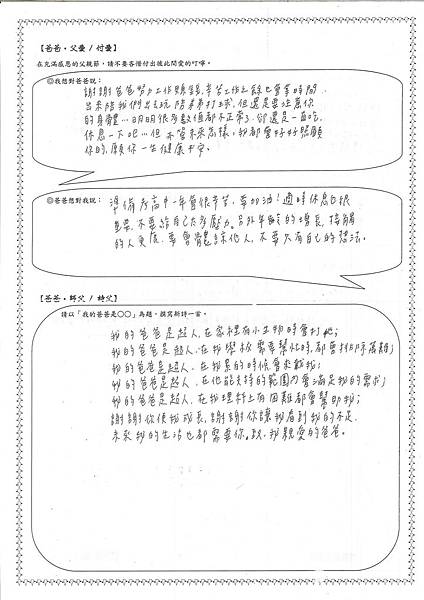 【爸爸‧父愛 / 付愛】
在充滿感恩的父親節，請不要吝惜付出彼此間愛的叮嚀。
◎我想對爸爸說：
謝謝爸爸努力工作賺錢，辛苦工作之餘也會拿時間
出來陪我們出去玩、陪弟弟打球，但還是要注意你
的身體…明明很多數值都不正常了，卻還是一直吃，
休息一下吧…但不管未來怎樣，我都會好好照顧
你的，願你一生健康平安。
◎爸爸想對我說：
準備考高中一年會很辛苦，要加油！適時休息也很
重要，不要給自己太多壓力。另外年齡的增長，接觸
的人更廣，要會體諒他人，不要只有自己的想法。
【爸爸‧師父 / 詩父】
請以「我的爸爸是○○」為題，撰寫新詩一首。
我的爸爸是超人，在家裡有小生物時會打牠；
我的爸爸是超人，在我學校需要幫忙時，都會排除萬難；
我的爸爸是超人，在我累的時候會來載我；
我的爸爸是超人，在他能支持的範圍內會滿足我的需求；
我的爸爸是超人，在我理科上有困難都會幫助我；
謝謝你使我成長，謝謝你讓我看到我的不足，
未來我的生活也都需要你，欸，我親愛的爸爸。